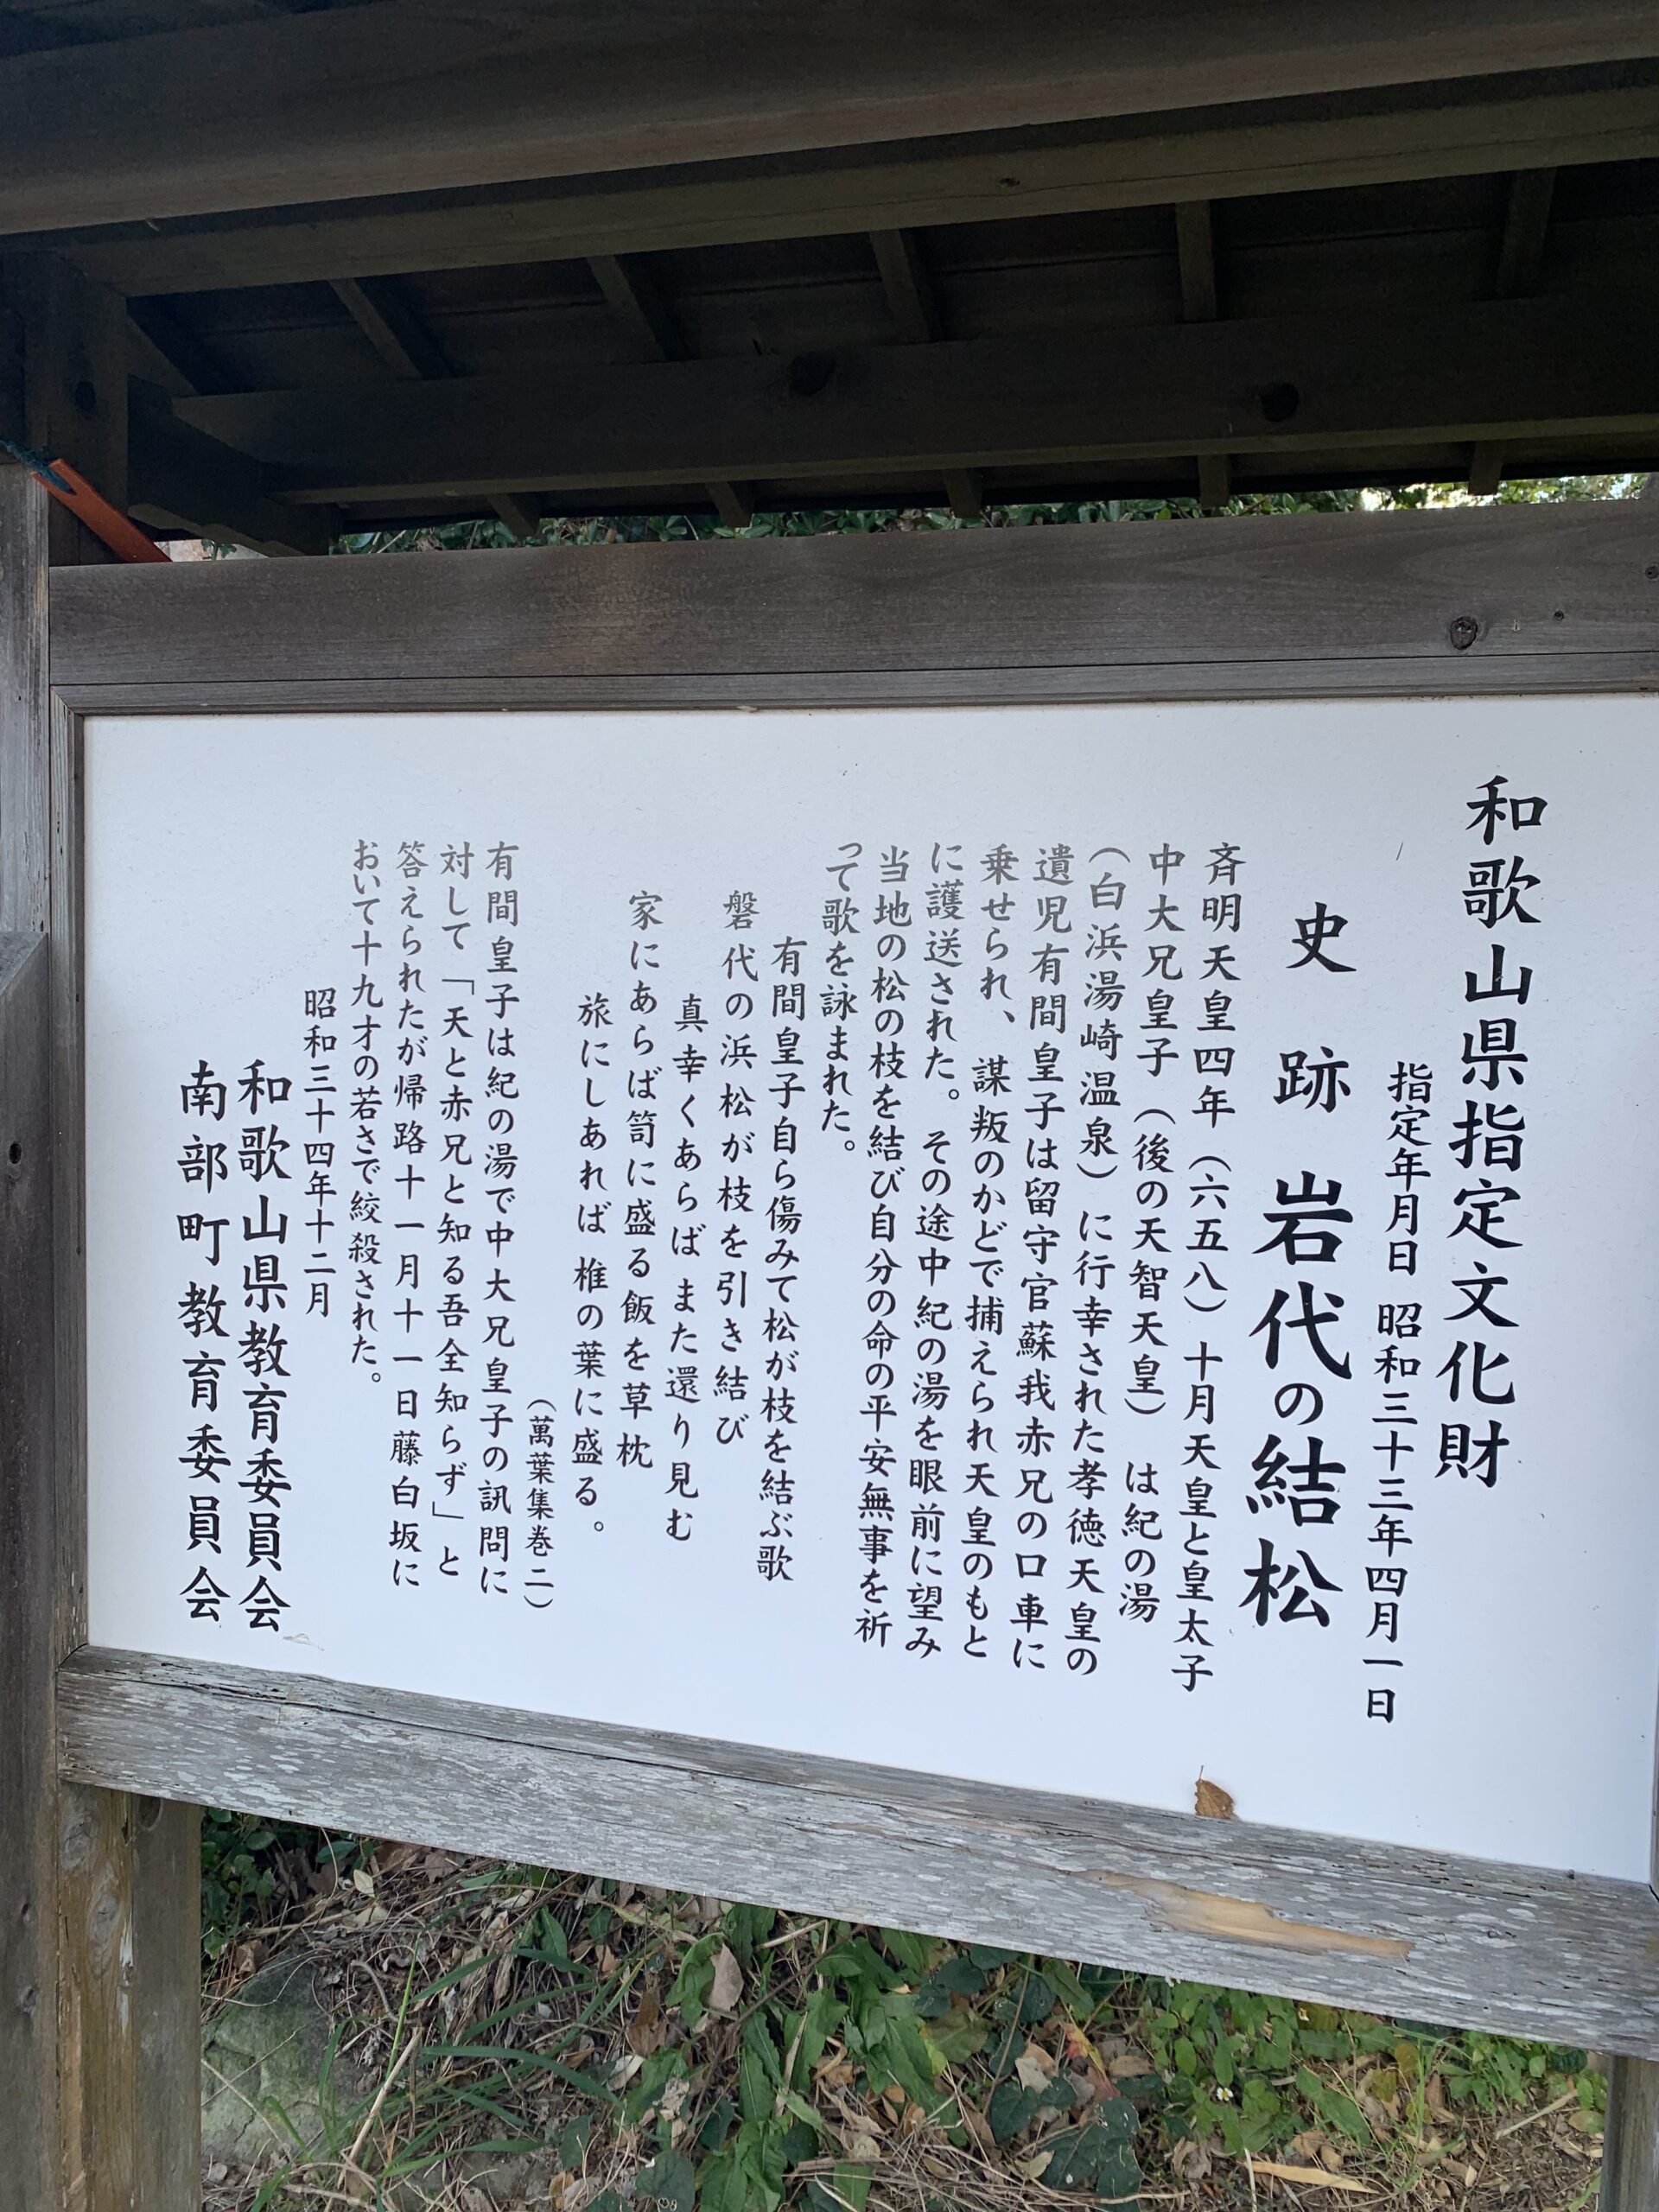 和歌山県指定文化財
指定年月日 昭和三十三年四月一日
史跡 岩代の結松
斉明天皇四年（六五八）十月天皇と皇太子
中大兄皇子（後の天智天皇）は紀の湯
（白浜湯崎温泉）に行幸された孝徳天皇の
遺児有間皇子は留守官蘇我赤兄の口車に
乗せられ、謀叛のかどで捕えられ天皇のもと
に護送された。その途中紀の湯を眼前に望み
当地の松の枝を結び自分の命の平安無事を祈
って歌を詠まれた。
有間皇子自ら傷みて松が枝を結ぶ歌
磐代の浜松が枝を引き結び
真幸くあらばまた還り見む
家にあらば笥に盛る飯を草枕
旅にしあれば椎の葉に盛る。
（萬葉集巻二）
有間皇子は紀の湯で中大兄皇子の訊問に
対して「天と赤兄と知る吾全知らず」と
答えられたが帰路十一月十一日藤白坂に
おいて十九才の若さで絞殺された。
昭和三十四年十二月
和歌山県教育委員会
南部町教育委員会